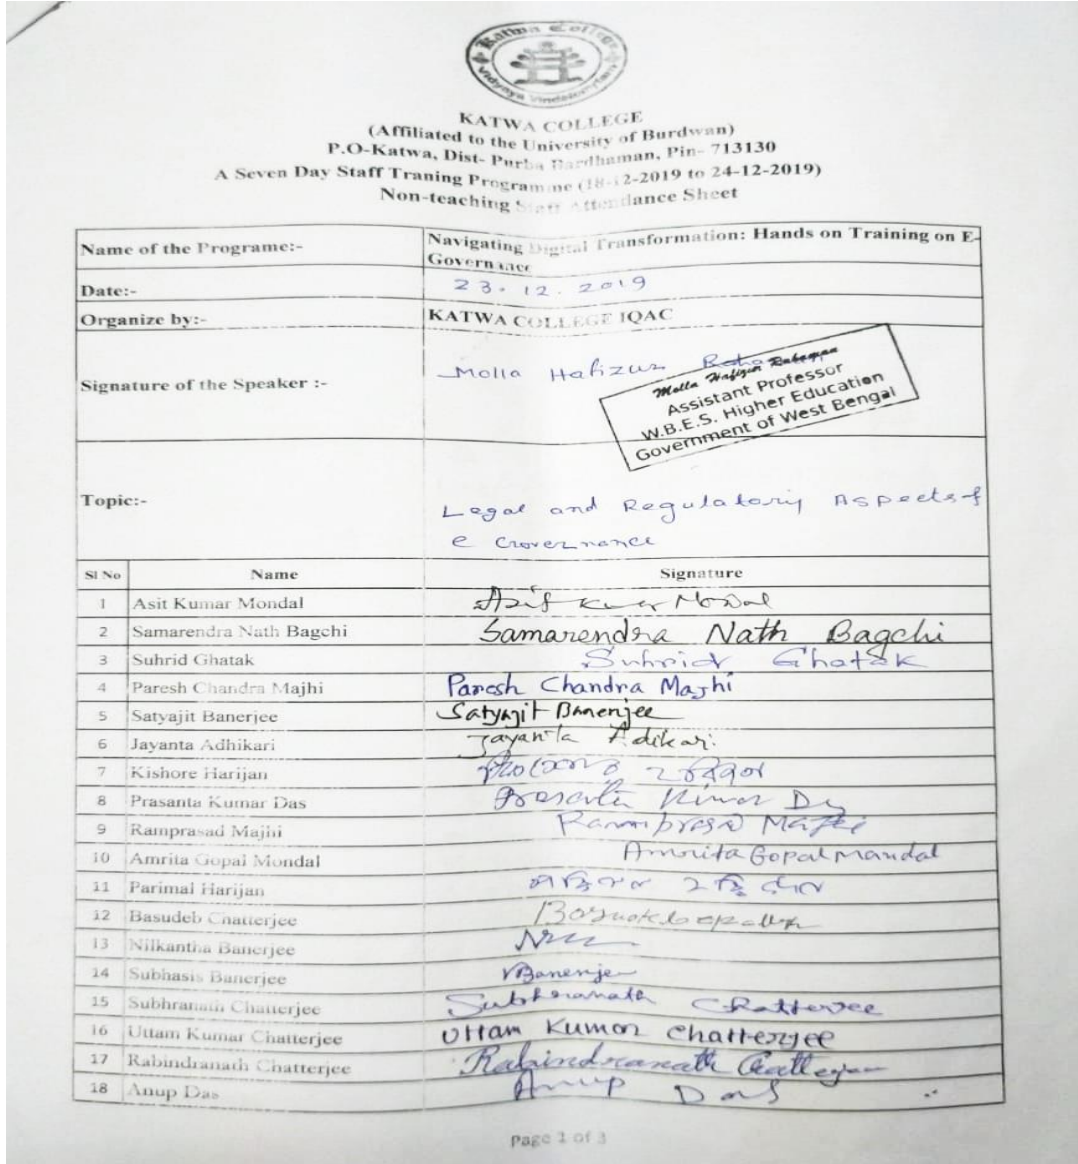 Katwa College
KATWA COLLEGE
(Affiliated to the University of Burdwan)
P.O-Katwa, Dist- Purba Bardhaman, Pin- 713130
A Seven Day Staff Traning Programme (18-12-2019 to 24-12-2019)
Non-teaching Staff Attendance Sheet
Name of the Programe:- Navigating Digital Transformation: Hands on Training on E-
Governance
Date:- 23.12.2019
Organize by:- KATWA COLLEGE IQAC
Signature of the Speaker :- Molla Hafizur
Molla Hafizur Rahaman
Assistant Professor
W.B.E.S. Higher Education
Government of West Bengal
Topic:- Legal and Regulatory Aspects of
e Governance
Sl No Name Signature
1 Asit Kumar Mondal Asit Kumar Mondal
2 Samarendra Nath Bagchi Samarendra Nath Bagchi
3 Suhrid Ghatak Suhrid Ghatak
4 Paresh Chandra Majhi Paresh Chandra Majhi
5 Satyajit Banerjee Satyajit Banerjee
6 Jayanta Adhikari Jayanta Adikari
7 Kishore Harijan
8 Prasanta Kumar Das Prasanta Kumar
9 Ramprasad Majhi Ramprasad Majhi
10 Amrita Gopal Mondal Amrita Gopal Mandal
11 Parimal Harijan
12 Basudeb Chatterjee
13 Nilkantha Banerjee
14 Subhasis Banerjee Banerjee
15 Subhranath Chatterjee Subhranath Chatterjee
16 Uttam Kumar Chatterjee Uttam Kumar Chatterjee
17 Rabindranath Chatterjee Rabindranath Chatterjee
18 Anup Das Anup Das
Page 1 of 3